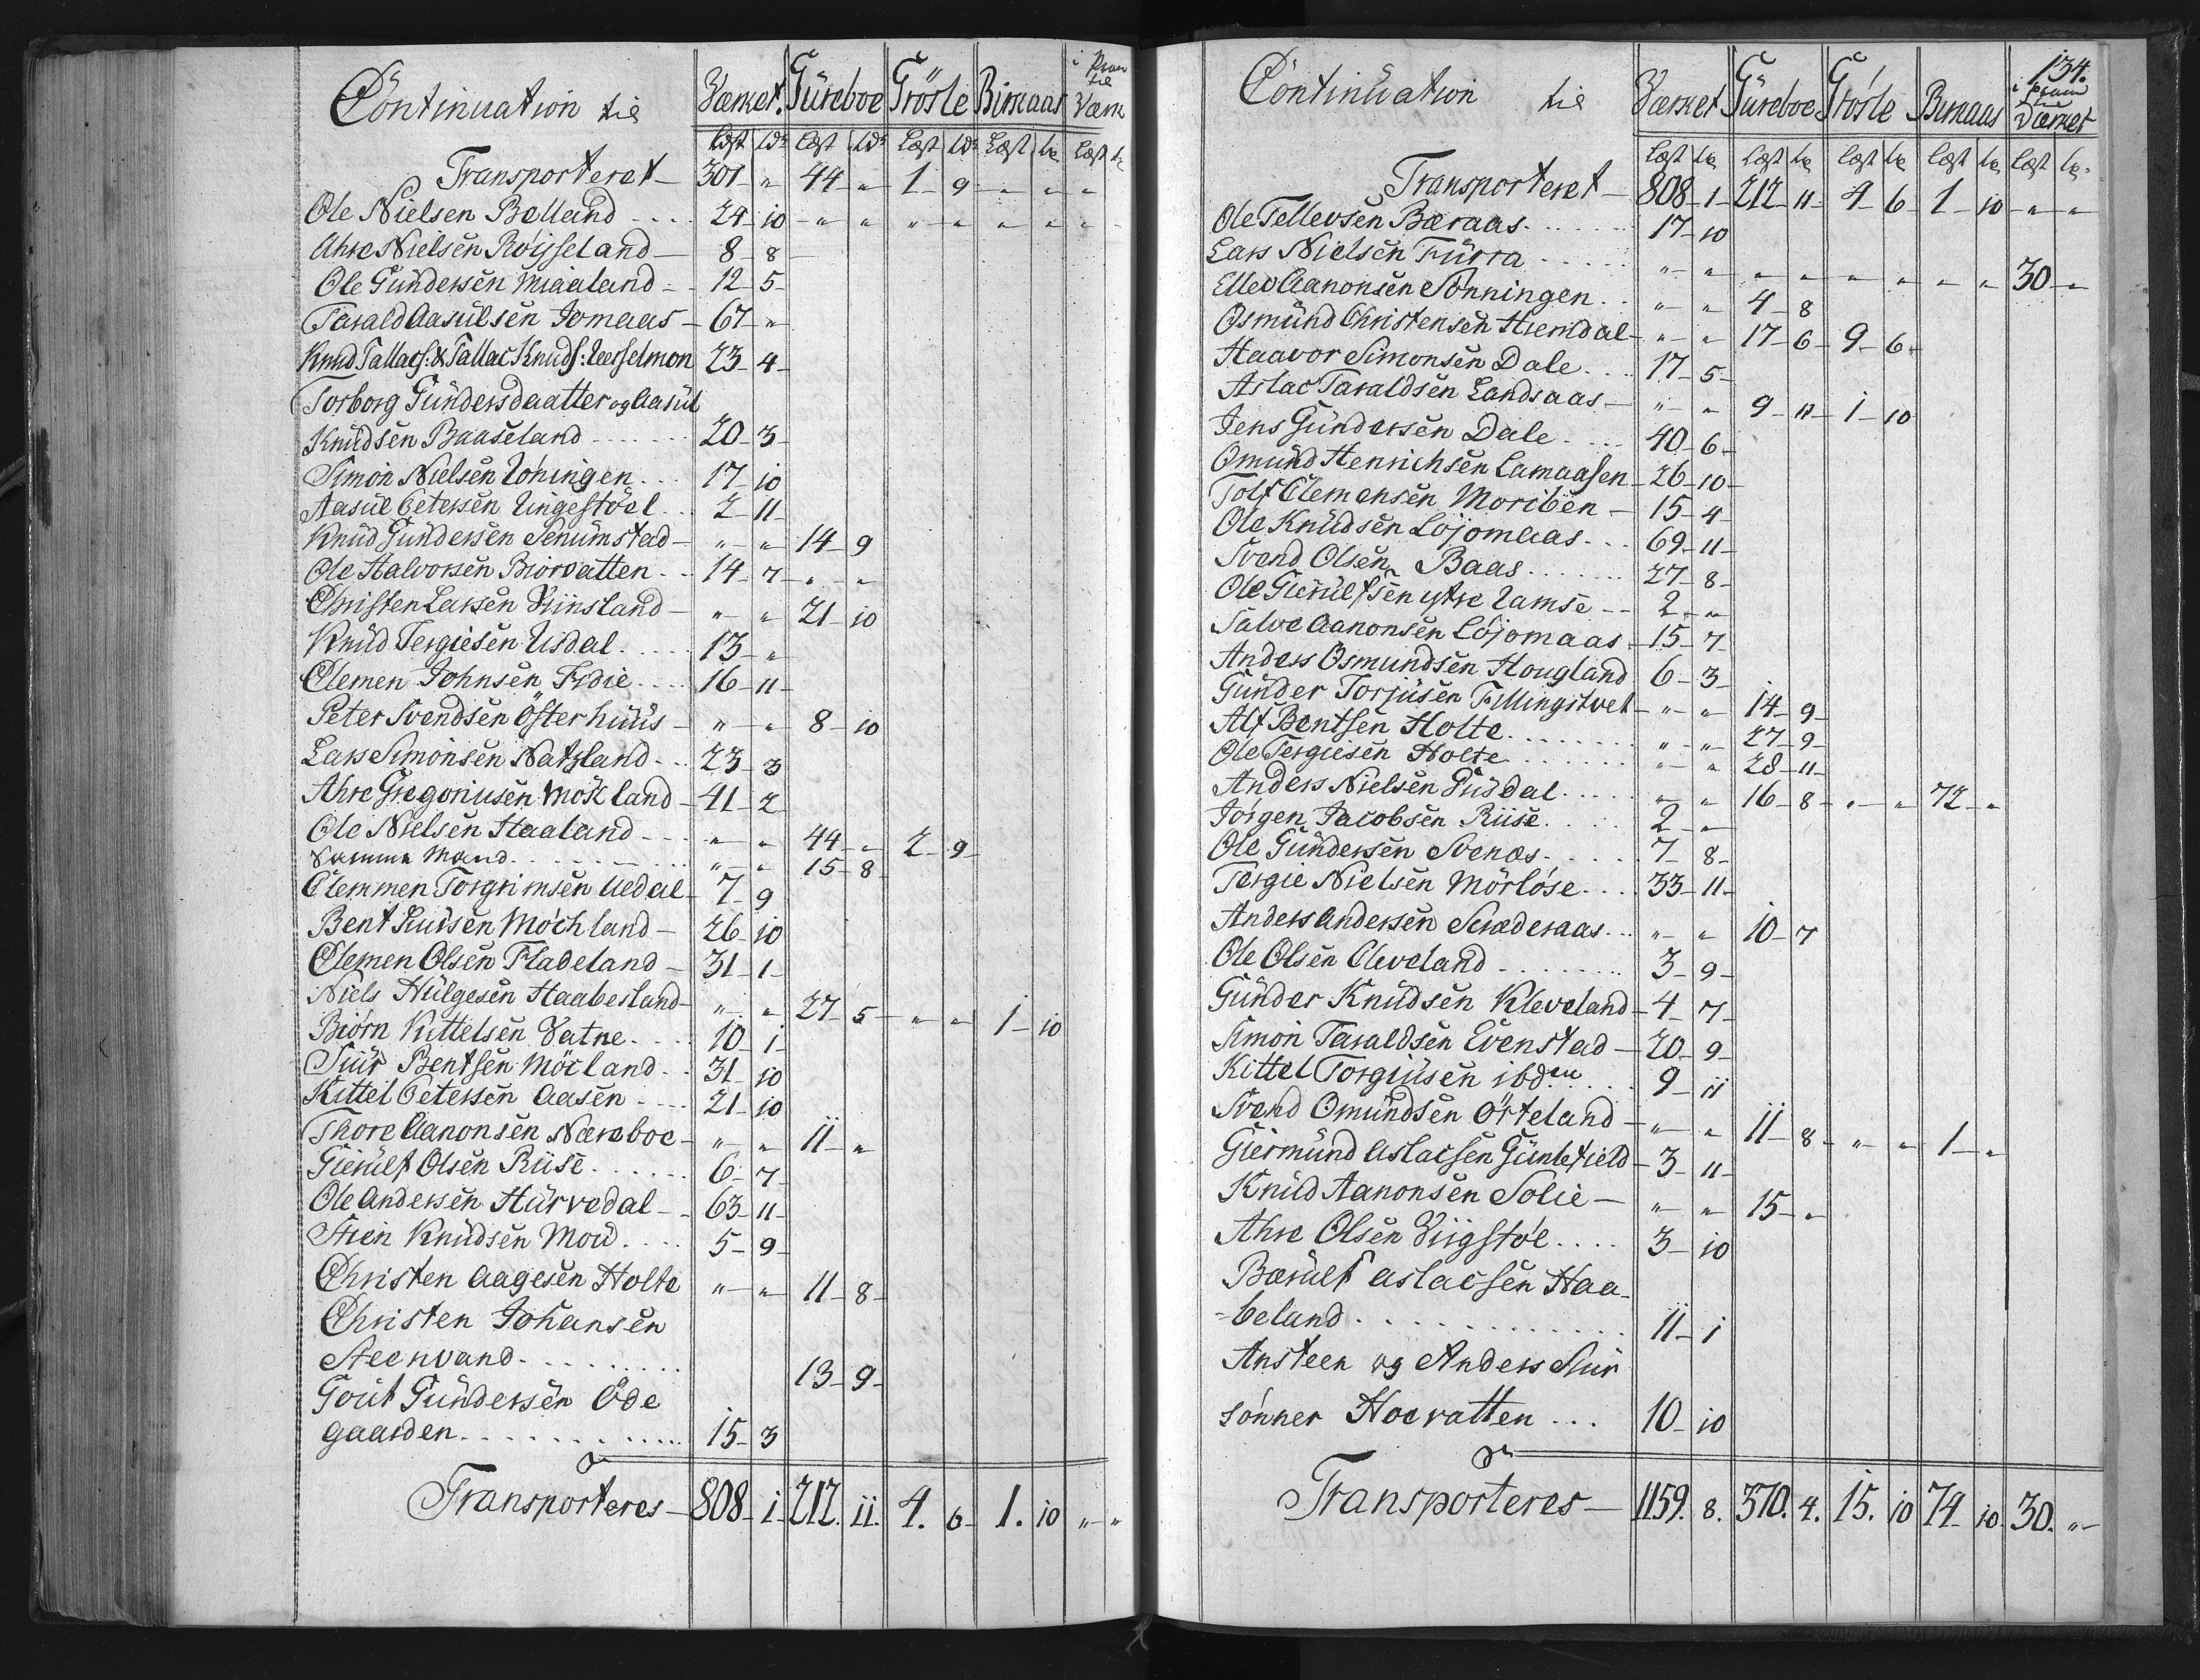 Continuation til Værket. Güreboe Trösle Birkaas i Pram til Værk
Læst ldr Læst ldr Læst ldr Læst lr Læst lr
Transporteret — 301 - „ 44 - „ 1 - 9 - „ - „ - „
Ole Nielsen Belland - - - - 24 - 10 - „ - „ - „ - „ - „ - „ - „
Ahre Nielsen Röysseland — 8 - 8 -
Ole Gündersen Miaaland - - 12 - 5 -
Tarald Aasülsen Jomaas - 67 - „
Knud Tallacs: & Tallac Knuds: Uerselmon 23 - 4 -
Torborg Gündersdaatter og Aasül
Knüdsen Baaseland - - - - - - 20 - 3 -
Simon Nielsen Uöningen - - - 17 - 10
Aasül Petersen Ringestöel - - 2 - 11 -
Knüd Gündersen Senümstad - „ - „ 14 - 9
Ole Halvorsen Biorvatten - - 14 - 7 - „ - „
Christen Larsen Viinsland — „ - „ 21 - 10
Knüd Tergiesen Usdal - - - - - 13 - „
Clemen Johnsen Fidie - - - - 16 - 11 -
Peter Svendsen Österhüüs - „ - „ 8 - 10
Lars Simonsen Natzland - - - 23 - 3
Ahre Gregoriusen Möcland - 41 - 2
Ole Nielsen Haaland - - - „ - „ 44 - „ 2 - 9 -
Samme Mand - - - - - - - - „ - „ 15 - 8
Clemmen Torgrimsen Uedal - 7 - 9
Bent Siursen Möchland — 26 - 10
Clemen Olsen Fladeland - 31 - 1 -
Niels Hülgesen Haabesland - „ - „ 27 - 5 - „ - „ 1 - 10
Biörn Kittelsen Vatne - - - - 10 - 1 -
Siür Bentsen Möcland - - 31 - 10
Kittel Petersen Aasen - - - - 21 - 10
Thore Aanonsen Næreboe - „ - „ 11 - „
Gierülf Olsen Riise - - - - - 6 - 7 -
Ole Andersen Hürvedal - - 63 - 11 -
Stien Knüdsen Mou - - - - 5 - 9 -
Christen Aagesen Holte „ - „ 11 - 8 -
Christen Johansen
Steenvand - - - - - - - - - 13 - 9 -
Gout Gündersen Öde
gaarden - - - - - - - - - - - 15 - 3
Transporteres — 808 - 1 - 212. 11. 4. 6 - 1. 10 „ - „
134.
Continuation til Værket Güreboe Trösle Birkaas i Pram til Værket
Læst lr Læst lr Læst lr Læst lr Læst lr.
Transporteret — 808 - 1 - 212 - 11 - 4 - 6 - 1 - 10 - „ - „
Ole Tellevsen Bæraas - - - - - - 17 - 10
Lars Nielsen Fürra - - - - - „ - „ - „ - „ - „ - „ - „ - „ 30 - „
Ellev Aanonsen Sönningen - - „ - „ 4 - 8
Osmünd Christensen Hiemdal - „ - „ 17 - 6 - 9 - 6 -
Haavor Simonsen Dale - - - - 17 - 5 -
Aslac Taraldsen Landsaas - „ - „ 9 - 11 - 1 - 10
Jens Gündersen Dale - - - - 40 - 6 -
Omünd Henrichsen Lamaasen - 26 - 10 -
Tolf Clemensen Moriben - 15 - 4 -
Ole Knüdsen Löjomaas - - - 69 - 11 -
Svend Olsen Baas - - - - - - - 27 - 8 -
Ole Gierülfsen ytre Ramse - - 2 - „
Salve Aanonsen Löjomaas - 15 - 7 -
Anders Osmundsen Hougland 6 - 3 -
Günder Torjüsen Fillingstvet - „ - „ 14 - 9 -
Alf Bentsen Holte - - - - - - - „ - „ 27 - 9 -
Ole Tergiesen Holte - - - - - - „ - „ 28 - 11 -
Anders Nielsen Gusdal - - - - „ - „ 16 - 8 - „ - „ 72 - „
Jörgen Jacobsen Riise - - - - 2 - „
Ole Gündersen Svenæs - - - - - 7 - 8 -
Tergie Nielsen Mörlöse - - - 33 - 11 -
Anders Andersen Scræderaas - - - „ - „ 10 - 7
Ole Olsen Cleveland - - - - - - - - 3 - 9 -
Günder Knüdsen Kleveland - 4 - 7 -
Simon Taraldsen Evenstad — 20 - 9 -
Kittel Torgiüsen ibden - - - - 9 - 11
Svend Omündsen Örteland - „ - „ 11 - 8 - „ - „ 1 - „
Giermünd Aslacsen Güntefield - 3 - 11 -
Knüd Aanonsen Solie — „ - „ 15 - „
Ahre Olsen Viigstöl - - - - 3 - 10
Bærülf Aslacsen Haa-
-beland - - - - - - - - - - - - - - 11 - 1
Ansteen og Anders Siür
sönner Hoevatten - - - 10 - 10
Transporteres — 1159. 8. 370. 4. 15. 10 74 - 10 - 30. „ -